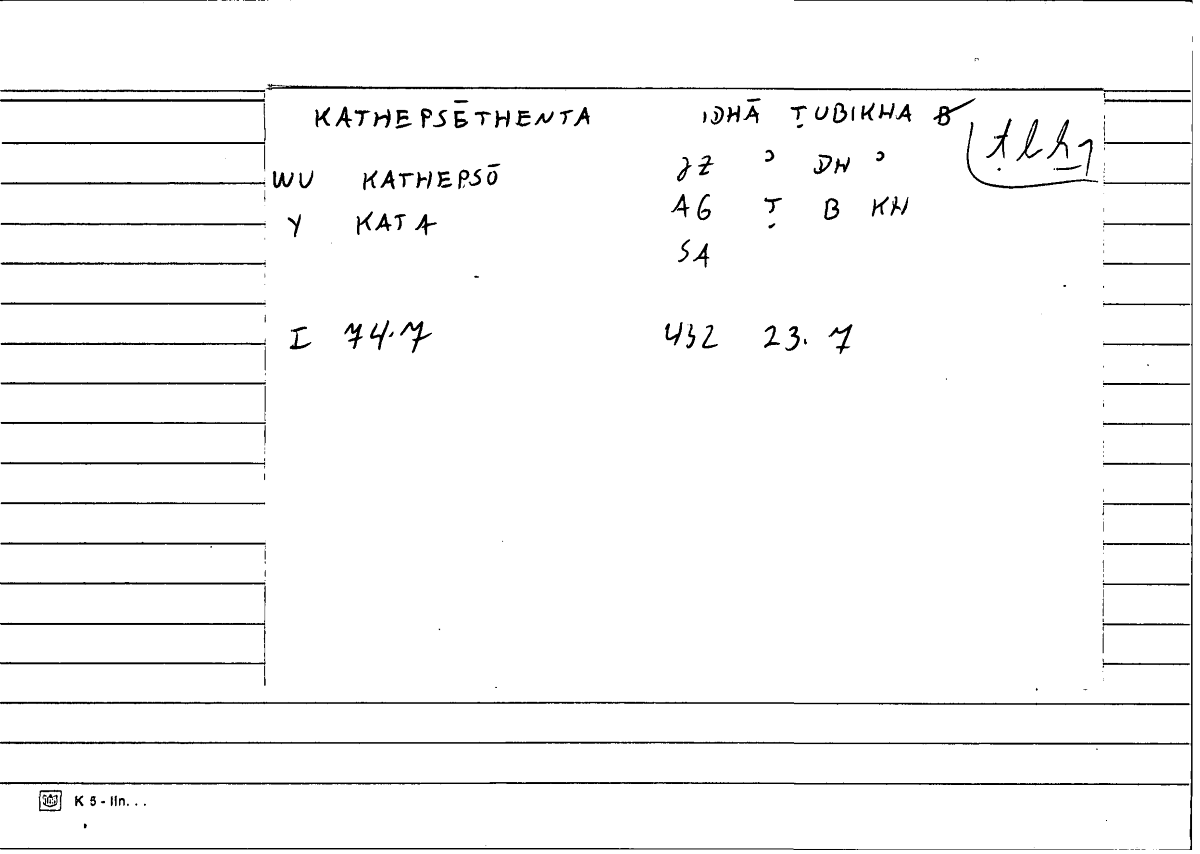 KATHEPSĒTHENTA IDHĀ ṬUBIKHA B ṭlḫ
WU KATHEPSŌ JZ ʾ DH ʾ
Y KATA AG Ṭ B KH
SA
I 74.7 432 23.7
K 5 - lln...